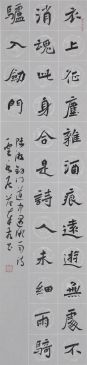 衣上征塵雜酒痕遠遊無處不
消魂此身合是詩人未細雨騎
驢入劍門
陸游劍門道中遇微雨